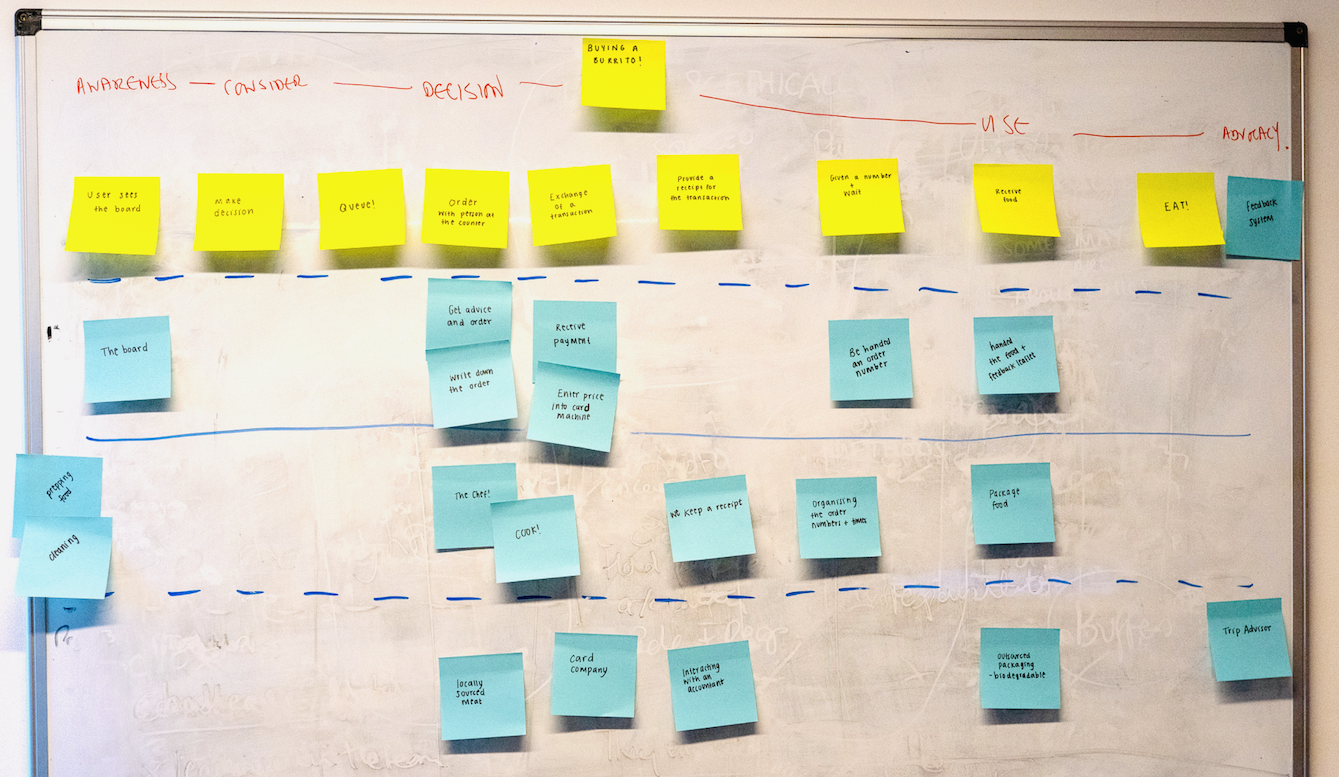 BUYING A
BURRITO!
AWARENESS — CONSIDER — DECISION —
USE — ADVOCACY.
User sees
the board
Make
decision
Queue!
Order
with person at
the counter
Exchange
of a
transaction
Provide a
receipt for
the transaction
Given a number
+
wait
Receive
food
EAT!
feedback
system
The board
Get advice
and order
Write down
the order
Receive
payment
Enter price
into card
machine
Be handed
an order
number
handed
the food +
feedback leaflet
prepping
food
cleaning
The Chef!
COOK!
We keep a receipt
Organising
the order
numbers + times
Package
food
locally
sourced
meat
Card
company
Interacting
with an
accountant
Outsourced
packaging
-biodegradable
Trip Advisor